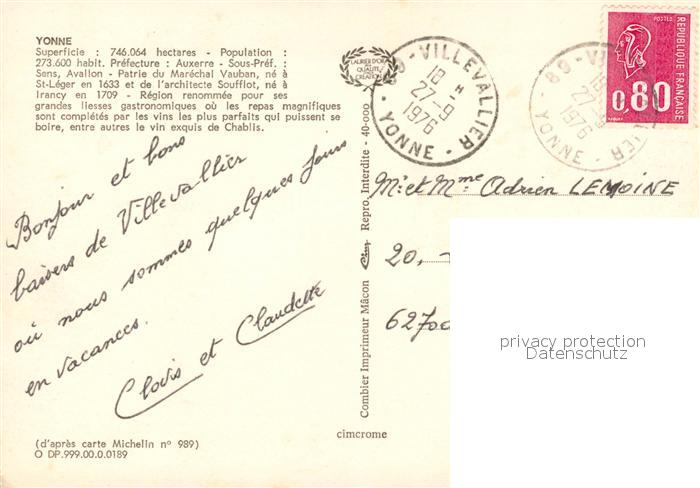 YONNE
Superficie : 746.064 hectares - Population :
273.600 habit. Préfecture : Auxerre - Sous-Préf. :
Sens, Avallon - Patrie du Maréchal Vauban, né à
St-Léger en 1633 et de l'architecte Soufflot, né à
Irancy en 1709 - Région renommée pour ses
grandes liesses gastronomiques où les repas magnifiques
sont complétés par les vins les plus parfaits qui puissent se
boire, entre autres le vin exquis de Chablis.
Bonjour et bons
baisers de Villevallier
où nous sommes quelques jours
en vacances.
Clovis et Claudette
(d'après carte Michelin n° 989)
O DP.999.00.0.0189
LAURIER D'OR
QUALITÉ
CRÉATION
Combier Imprimeur Mâcon Cim Repro. Interdite - 40-000
cimcrome
89 - VILLEVALLIER -
18 H
27-9
1976
YONNE
89 - VILLEVALLIER -
18 H
27-9
1976
YONNE
POSTES
REPUBLIQUE FRANÇAISE
0,80
Mr et Mme Adrien LEMOINE
20, -
62700
privacy protection
Datenschutz